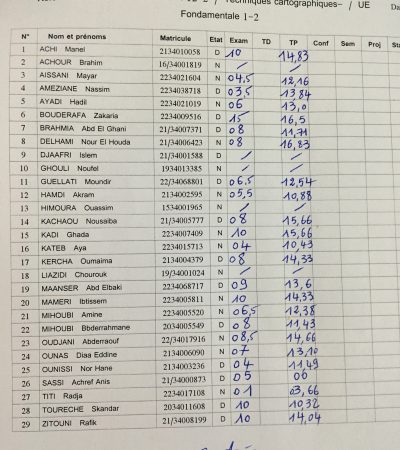 Techniques cartographiques- / UE
Fondamentale 1-2
N° Nom et prénoms Matricule Etat Exam TD TP Conf Sem Proj
1 ACHI Manel 2134010058 D 10 14,83
2 ACHOUR Brahim 16/34001819 N / /
3 AISSANI Mayar 2234021604 N 04,5 12,16
4 AMEZIANE Nassim 2234038718 D 03,5 13,84
5 AYADI Hadil 2234021019 N 06 13,0
6 BOUDERAFA Zakaria 2234009516 D 15 16,5
7 BRAHMIA Abd El Ghani 21/34007371 D 08 11,71
8 DELHAMI Nour El Houda 21/34006423 N 08 16,83
9 DJAAFRI Islem 21/34001588 D / /
10 GHOULI Noufel 1934013385 N / /
11 GUELLATI Moundir 22/34068801 D 06,5 12,54
12 HAMDI Akram 2134002595 N 05,5 10,88
13 HIMOURA Ouassim 1534001965 N / /
14 KACHAOU Nousaiba 21/34005777 D 08 15,66
15 KADI Ghada 2234007409 N 10 15,66
16 KATEB Aya 2234015713 N 04 10,43
17 KERCHA Oumaima 2134004379 D 08 14,33
18 LIAZIDI Chourouk 19/34001024 N / /
19 MAANSER Abd Elbaki 2234068717 D 09 13,6
20 MAMERI Ibtissem 2234005811 N 10 14,33
21 MIHOUBI Amine 2234005520 N 06,5 12,38
22 MIHOUBI Bbderrahmane 2034005549 D 08 11,43
23 OUDJANI Abderraouf 22/34017916 N 08,5 14,66
24 OUNAS Diaa Eddine 2134006090 N 07 13,10
25 OUNISSI Nor Hane 2134003236 D 04 11,49
26 SASSI Achref Anis 21/34000873 D 05 00
27 TITI Radja 2234017108 N 01 03,66
28 TOURECHE Skandar 2034011608 D 10 10,32
29 ZITOUNI Rafik 21/34008199 D 10 14,04